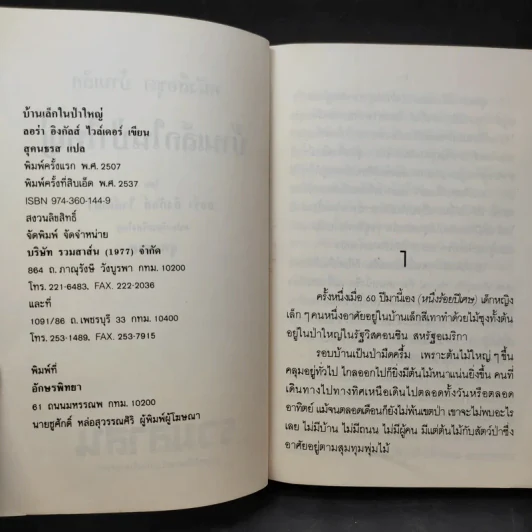 บ้านเล็กในป่าใหญ่
ลอร่า อิงกัลส์ ไวล์เดอร์ เขียน
สุคนธรส แปล
พิมพ์ครั้งแรก พ.ศ. 2507
พิมพ์ครั้งที่สิบเอ็ด พ.ศ. 2537
ISBN 974-360-144-9
สงวนลิขสิทธิ์
จัดพิมพ์ จัดจำหน่าย
บริษัท รวมสาส์น (1977) จำกัด
864 ถ.ภาณุรังษี วังบูรพา กทม. 10200
โทร. 221-6483. FAX. 222-2036
และที่
1091/86 ถ.เพชรบุรี 33 กทม. 10400
โทร. 253-1489. FAX. 253-7915
พิมพ์ที่
อักษรพิทยา
61 ถนนมหรรณพ กทม. 10200
นายชูศักดิ์ หล่อสุวรรณศิริ ผู้พิมพ์ผู้โฆษณา
1
ครั้งหนึ่งเมื่อ 60 ปีมานี้เอง (หนึ่งร้อยปีเศษ) เด็กหญิง
เล็กๆ คนหนึ่งอาศัยอยู่ในบ้านเล็กสีเทาทำด้วยไม้ซุงทั้งต้น
อยู่ในป่าใหญ่ในรัฐวิสคอนซิน สหรัฐอเมริกา
รอบบ้านเป็นป่ามืดครึ้ม เพราะต้นไม้ใหญ่ๆ ขึ้น
คลุมอยู่ทั่วไป ไกลออกไปก็ยิ่งมีต้นไม้หนาแน่นยิ่งขึ้น คนที่
เดินทางไปทางทิศเหนือเดินไปตลอดทั้งวันหรือตลอด
อาทิตย์ แม้จนตลอดเดือนก็ยังไม่พ้นเขตป่า เขาจะไม่พบอะไร
เลย ไม่มีบ้าน ไม่มีถนน ไม่มีผู้คน มีแต่ต้นไม้กับสัตว์ป่าซึ่ง
อาศัยอยู่ตามสุมทุมพุ่มไม้